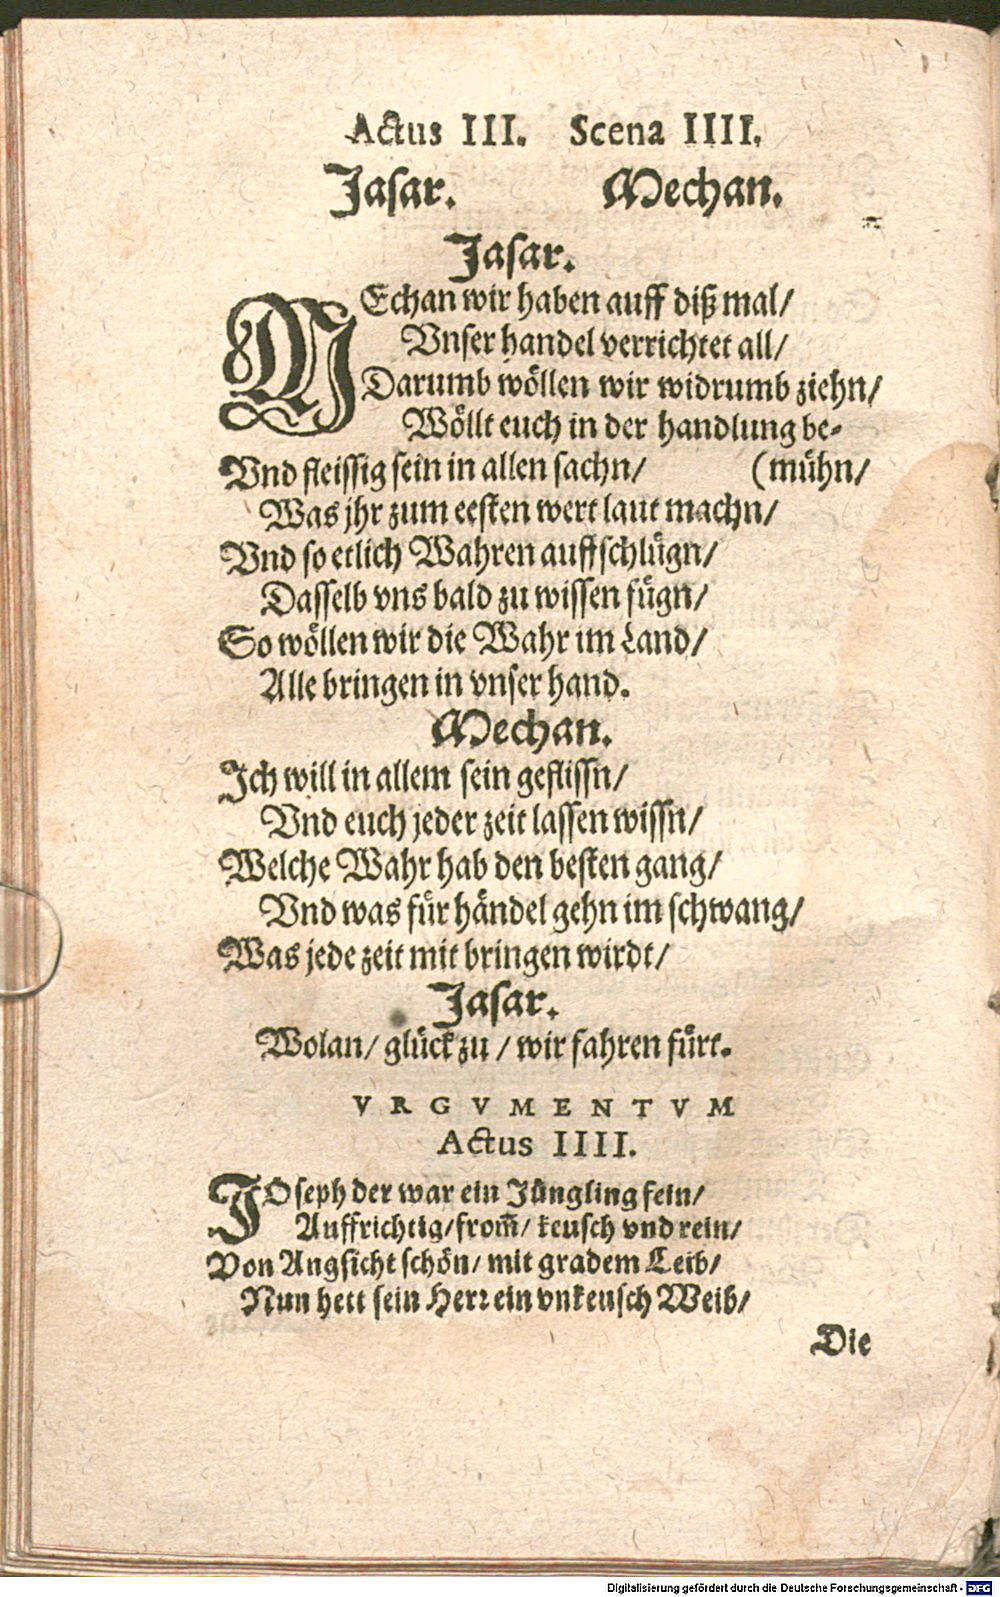 Actus III. Scena IIII.
Jasar. Mechan.
Jasar.
MEchan wir haben auff diß mal/
Vnser handel verrichtet all/
Darumb wöllen wir widrumb ziehn/
Wöllt euch in der handlung be-
Vnd fleissig sein in allen sachn/ (mühn/
Was jhr zum eesten wert laut machn/
Vnd so etlich Wahren auffschlügn/
Dasselb vns bald zu wissen fügn/
So wöllen wir die Wahr im Land/
Alle bringen in vnser hand.
Mechan.
Ich will in allem sein geflissn/
Vnd euch jeder zeit lassen wissn/
Welche Wahr hab den besten gang/
Vnd was für händel gehn im schwang/
Was jede zeit mit bringen wirdt/
Jasar.
Wolan/ glück zu/ wir fahren fürt.
VRGVMENTVM
Actus IIII.
JOseph der war ein Jüngling fein/
Auffrichtig/ from̃/ keusch vnd rein/
Von Angsicht schön/ mit gradem Leib/
Nun hett sein Herr ein vnkeusch Weib/
Die
Digitalisierung gefördert durch die Deutsche Forschungsgemeinschaft - DFG